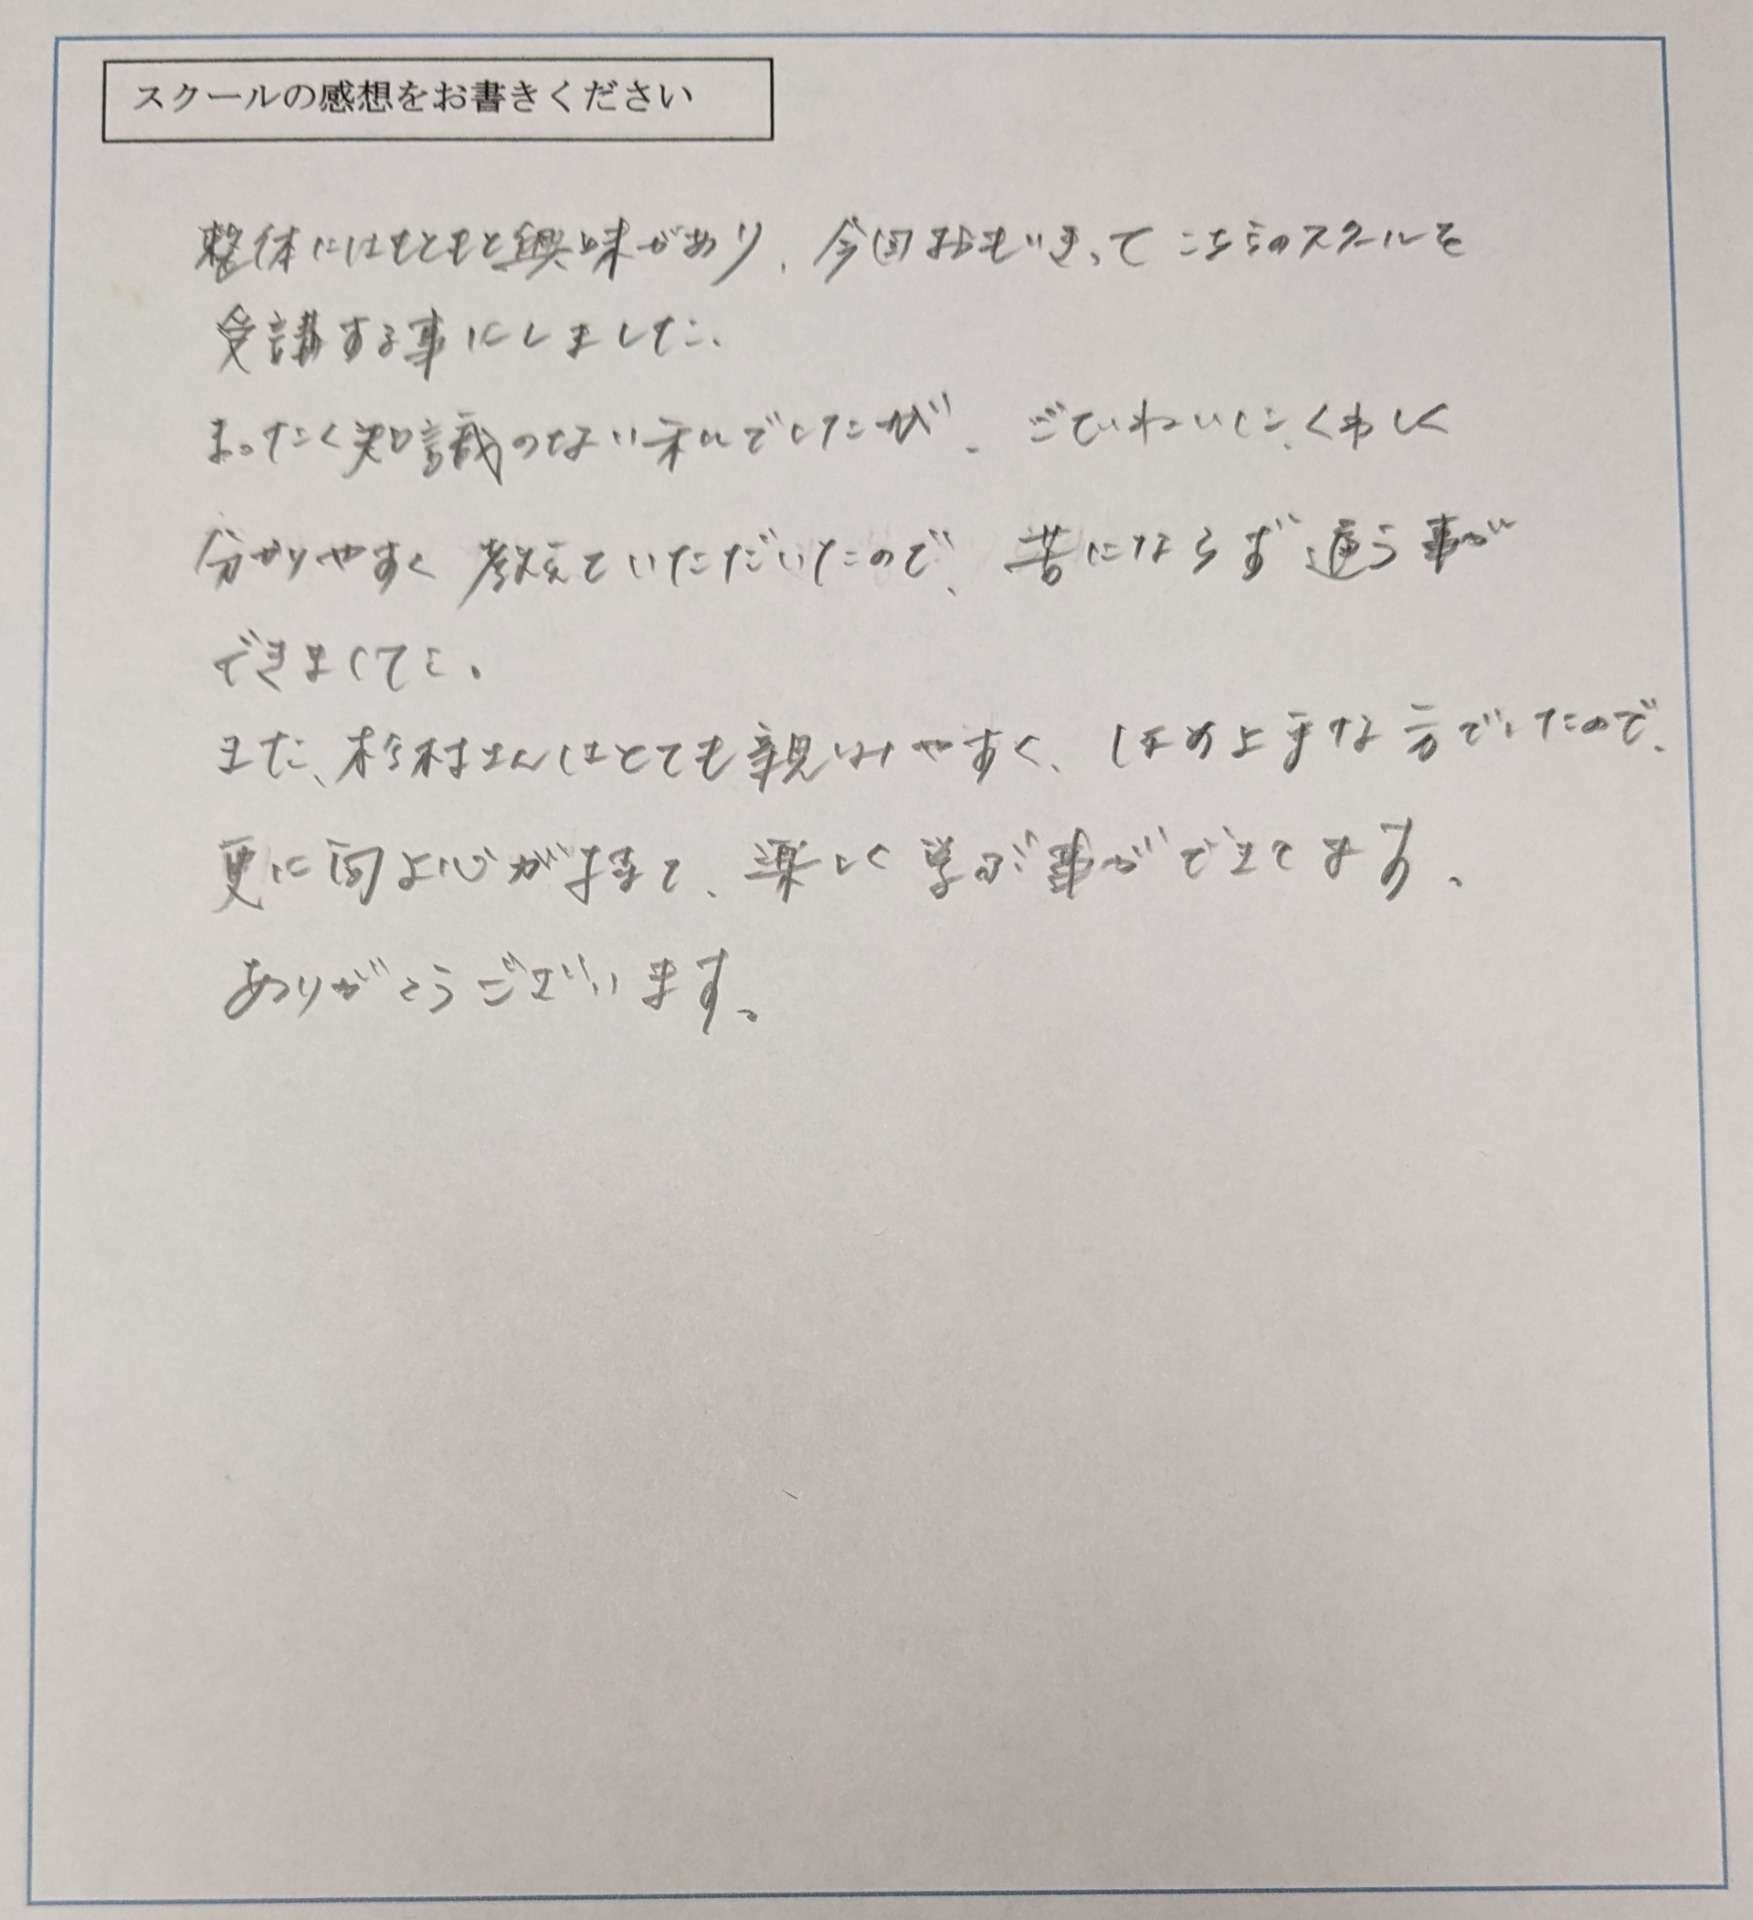 スクールの感想をお書きください
整体にはもともと興味があり、今回おもいきってこちらのスクールを
受講する事にしました。
まったく知識のない私でしたが、ごていねいに、くわしく
分かりやすく教えていただいたので、苦にならず通う事が
できました。
また、杉村さんはとても親しみやすく、ほめ上手な方でしたので、
更に向上心が持て、楽しく学ぶ事ができてます。
ありがとうございます。